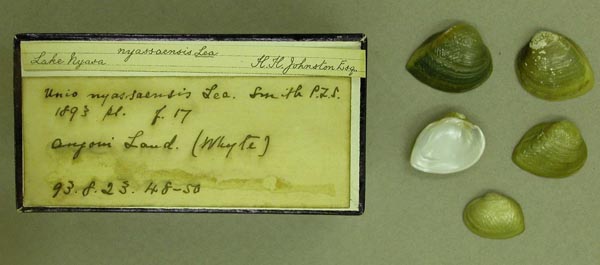 nyassaensis Lea
Lake Nyasa H. H. Johnston Esq.
Unio nyassaensis Lea. Smith P.Z.S.
1893 pl. f. 17
Angoni Land. (Whyte)
93.8.23.48-50